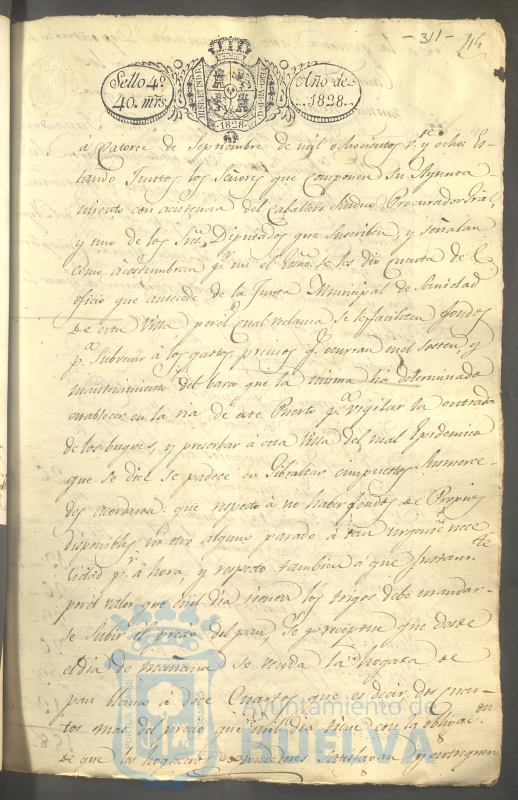 - 311 -
215
Sello 4º
40. mrs
HISPANIARUM
1828
Año de
1828.
á Catorce de Septiembre de mil ochocientos v.te y ocho: Es
tando Juntos los Señores que componen su Ayunta
miento con asistencia del Caballero Sindico Procurador Gral,
y uno de los Sres Diputados que suscriben, y señalan
como acostumbran pr mi el Essno. se les dio cuenta de
oficio que antecede de la Junta Municipal de Sanidad
de esta Villa por el qual reclama se le faciliten fondos
pa subvenir á los gastos precisos qe ocurran en el sosten, y
mantenimiento del barco que la misma ha determinado
establecer en la ria de este Puerto pa vigilar la entrada
de los buques, y preserbar á esta Villa del mal Epidemico
que se dice se padece en Gibraltar enterados sus merce
des acordaron: que respecto á no haber fondos de Propios
disponibles ni otro alguno parado á tan urgente nece
cidad pr ahora, y respeto tambien á que justamte
por el valor que en el dia tienen los trigos debe mandar
se subir el precio del pan, Se preceptue que desde
el dia de mañana se venda la hogaza de
pan blanco á doce Cuartos que es decir dos quar-
tos mas del precio que en el dia tiene con la obligacon
de que los vendedores y entreguen
Ayuntamiento de
HUELVA